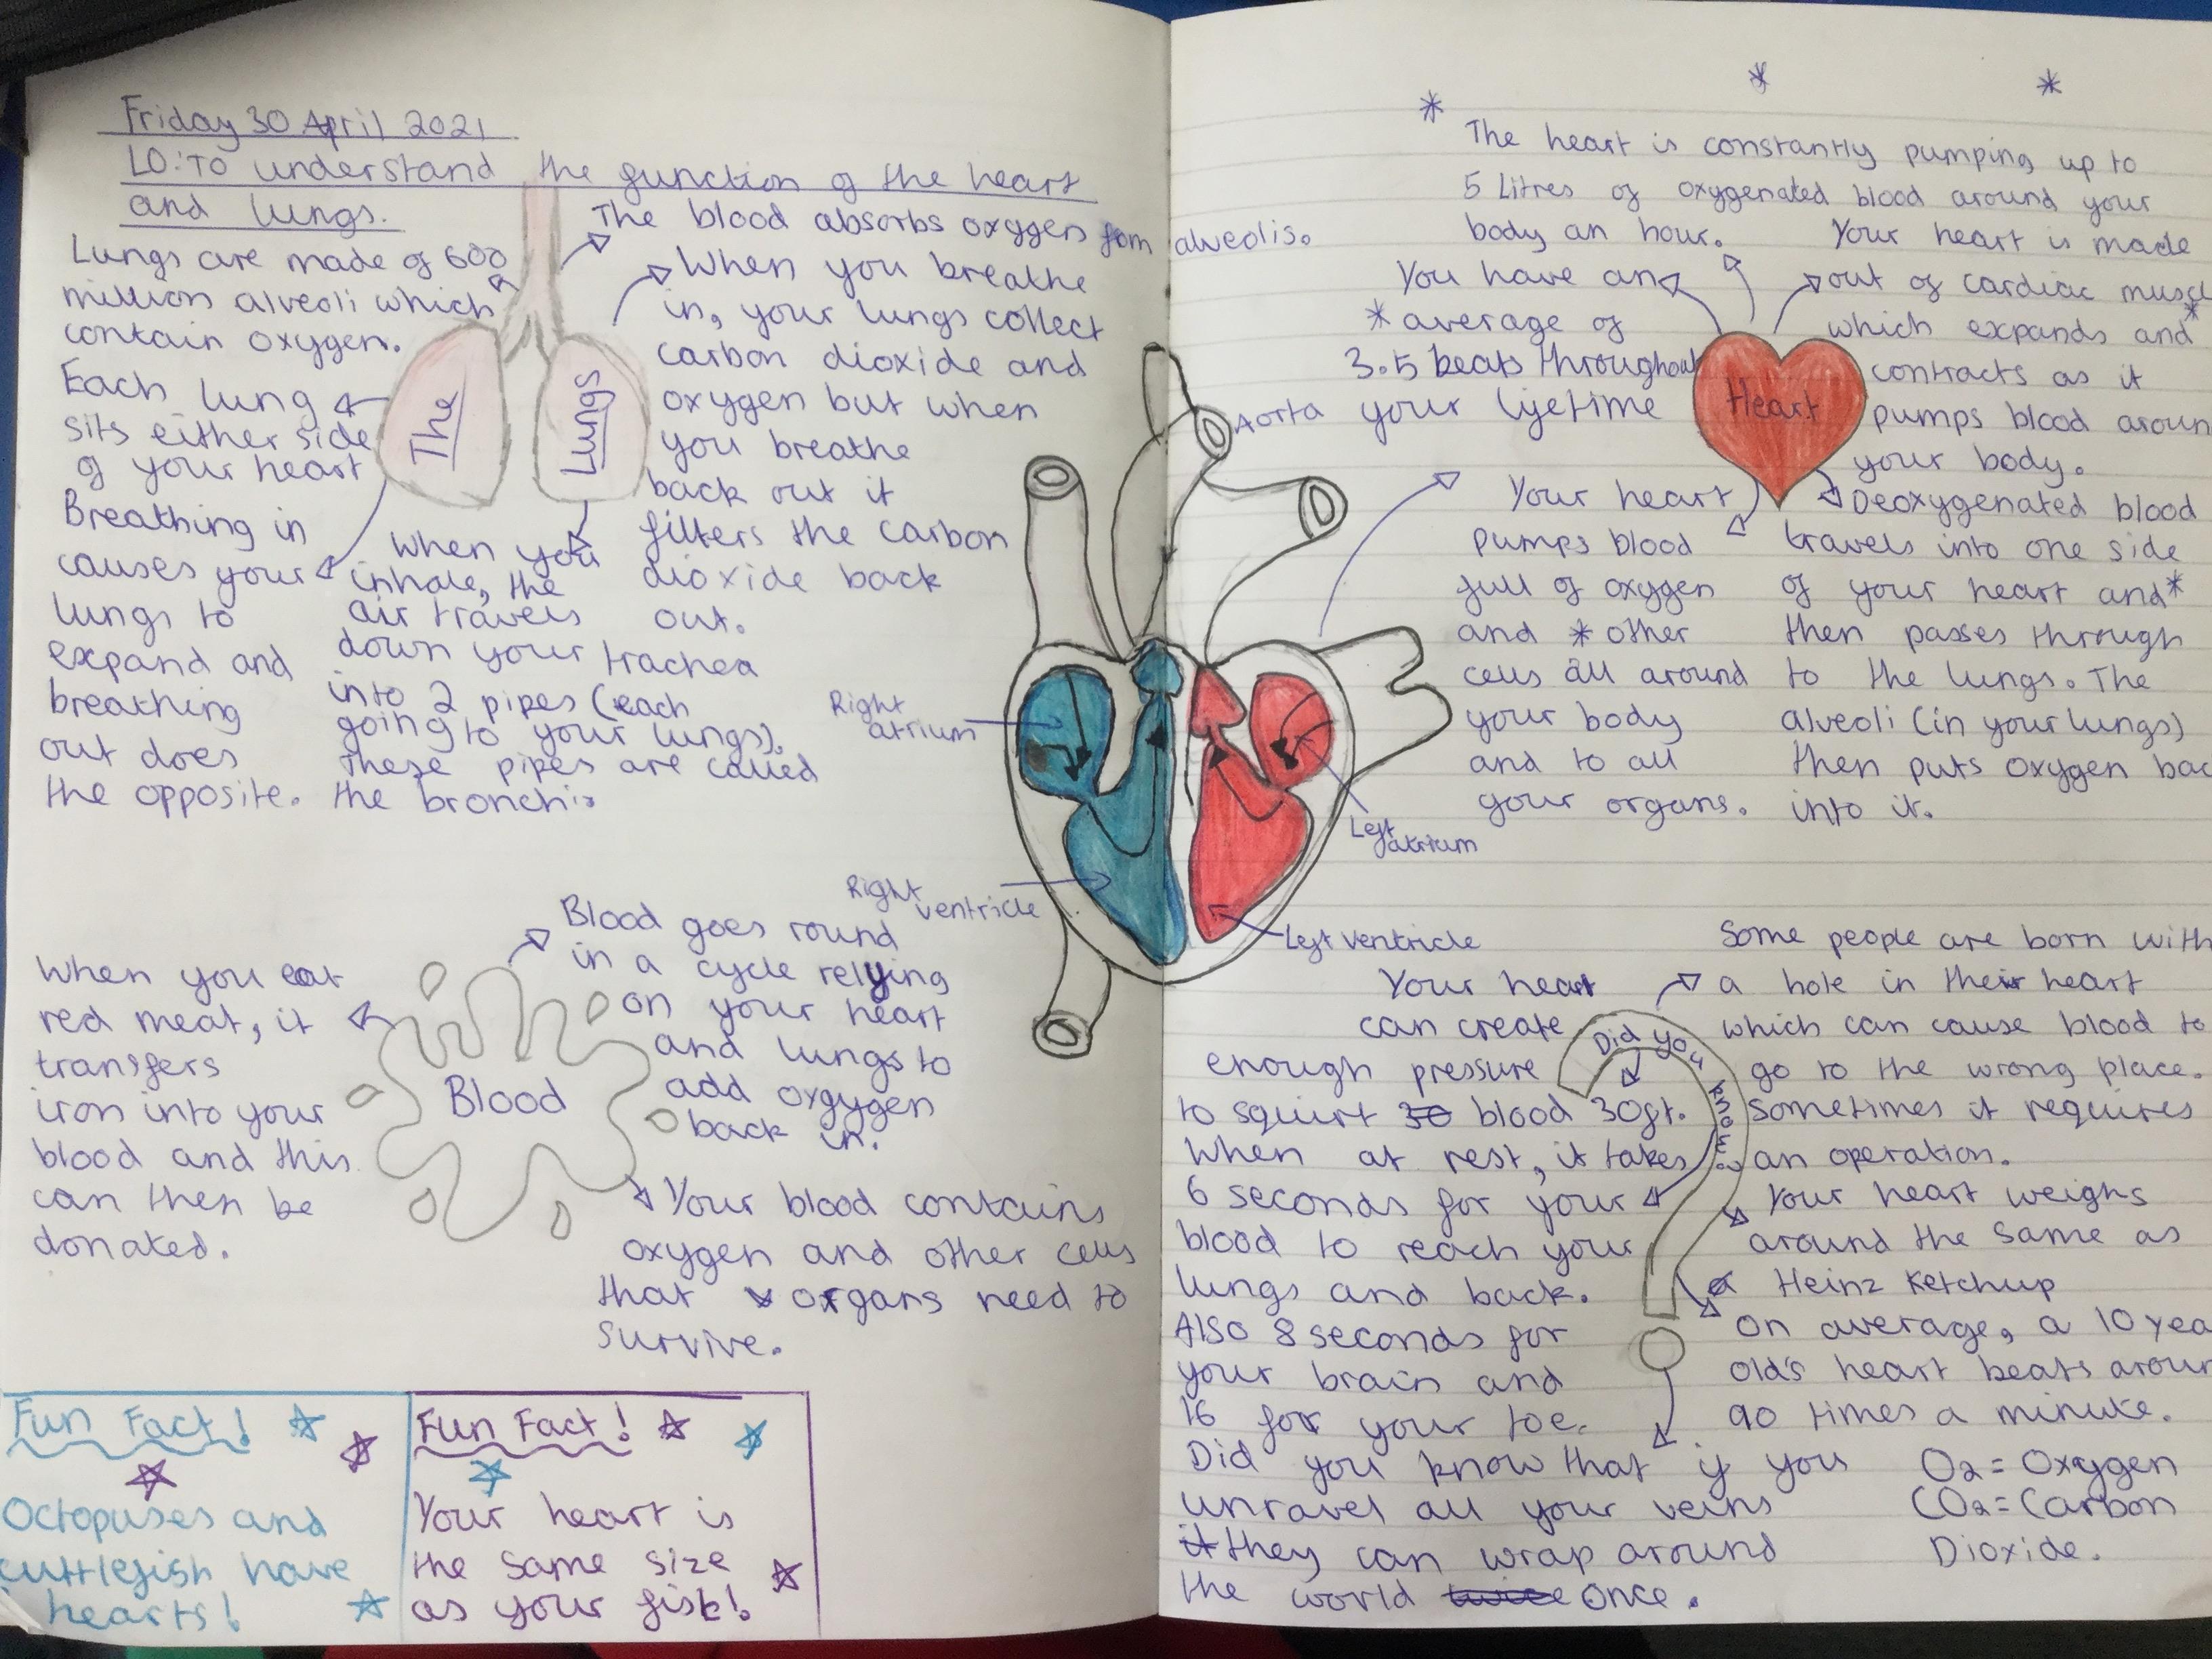 Friday 30 April 2021
LO: To understand the function of the heart
and lungs.
Lungs are made of 600
million alveoli which
contain oxygen.
Each lung
sits either side
of your heart
Breathing in
causes your
lungs to
expand and
breathing
out does
the opposite.
The
Lungs
The blood absorbs oxygen fom alveolis.
When you breathe
in, your lungs collect
carbon dioxide and
oxygen but when
you breathe
back out it
filters the carbon
dioxide back
out.
When you
inhale, the
air travels
down your trachea
into 2 pipes (each
going to your lungs).
These pipes are called
the bronchi
Right
atrium
Right
ventricle
Aorta
Left
atrium
Left ventricle
When you eat
red meat, it
transfers
iron into your
blood and this
can then be
donated.
Blood
Blood goes round
in a cycle relying
on your heart
and lungs to
add oxgygen
back in.
Your blood contains
oxygen and other cells
that organs need to
survive.
Fun Fact!
Octopuses and
cuttlefish have
hearts!
Fun Fact!
Your heart is
the same size
as your fist!
The heart is constantly pumping up to
5 Litres of oxygenated blood around your
body an hour.
You have an
*average of
3.5 beats throughout
your lifetime
Heart
Your heart is made
out of cardiac muscl
which expands and*
contracts as it
pumps blood aroun
your body.
Your heart
pumps blood
full of oxygen
and * other
cells all around
your body
and to all
your organs.
Deoxygenated blood
travels into one side
of your heart and*
then passes through
to the lungs. The
alveoli (in your lungs)
then puts oxygen bac
into it.
Your heart
can create
enough pressure
to squirt 30 blood 30ft.
When at rest, it takes
6 seconds for your
blood to reach your
lungs and back.
Also 8 seconds for
your brain and
16 for your toe.
Did you know?
Some people are born with
a hole in their heart
which can cause blood to
go to the wrong place.
Sometimes it requires
an operation.
Your heart weighs
around the same as
a Heinz Ketchup
On average, a 10 yea
old's heart beats aroun
90 times a minute.
Did you know that if you
unravel all your veins
it they can wrap around
the world twice once.
O2 = Oxygen
CO2 = Carbon
Dioxide.